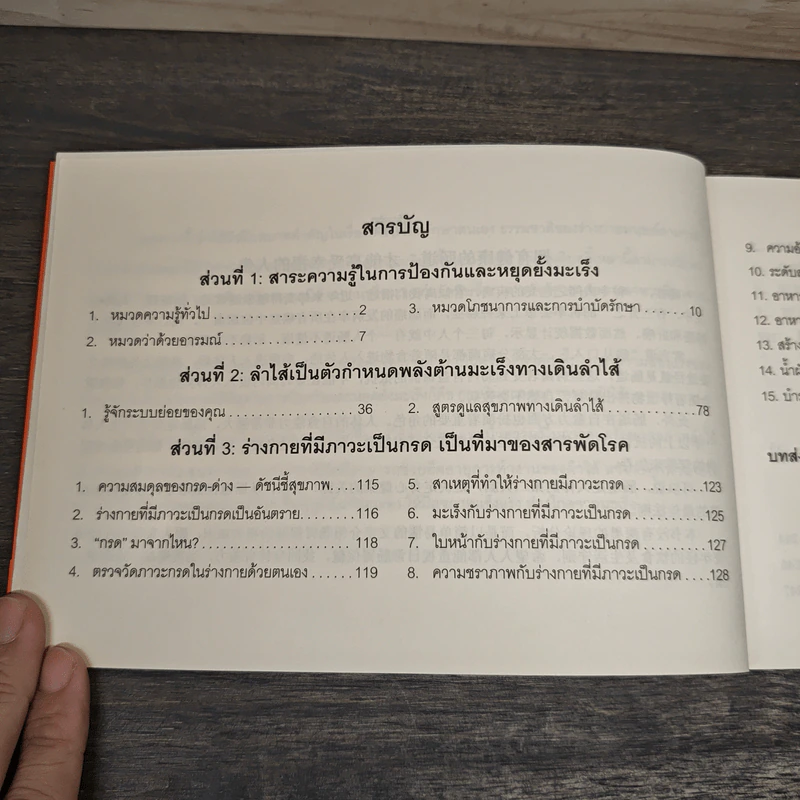 สารบัญ
ส่วนที่ 1: สาระความรู้ในการป้องกันและหยุดยั้งมะเร็ง
1. หมวดความรู้ทั่วไป . . . . . . . . . . . . . . . . . . . . 2
2. หมวดว่าด้วยอารมณ์ . . . . . . . . . . . . . . . . . . 7
3. หมวดโภชนาการและการบำบัดรักษา . . . . . . 10
ส่วนที่ 2: ลำไส้เป็นตัวกำหนดพลังต้านมะเร็งทางเดินลำไส้
1. รู้จักระบบย่อยของคุณ . . . . . . . . . . . . . . . . . 36
2. สูตรดูแลสุขภาพทางเดินลำไส้ . . . . . . . . . . . .78
ส่วนที่ 3: ร่างกายที่มีภาวะเป็นกรด เป็นที่มาของสารพัดโรค
1. ความสมดุลของกรด-ด่าง — ดัชนีชี้สุขภาพ. . . .115
2. ร่างกายที่มีภาวะเป็นกรดเป็นอันตราย. . . . . . . . 116
3. "กรด" มาจากไหน? . . . . . . . . . . . . . . . . . . . . . 118
4. ตรวจวัดภาวะกรดในร่างกายด้วยตนเอง . . . . . . 119
5. สาเหตุที่ทำให้ร่างกายมีภาวะกรด . . . . . . . . . . .123
6. มะเร็งกับร่างกายที่มีภาวะเป็นกรด . . . . . . . . . . 125
7. ใบหน้ากับร่างกายที่มีภาวะเป็นกรด . . . . . . . . . 127
8. ความชราภาพกับร่างกายที่มีภาวะเป็นกรด . . . .128
9.
10.
11.
12.
13.
14.
15.